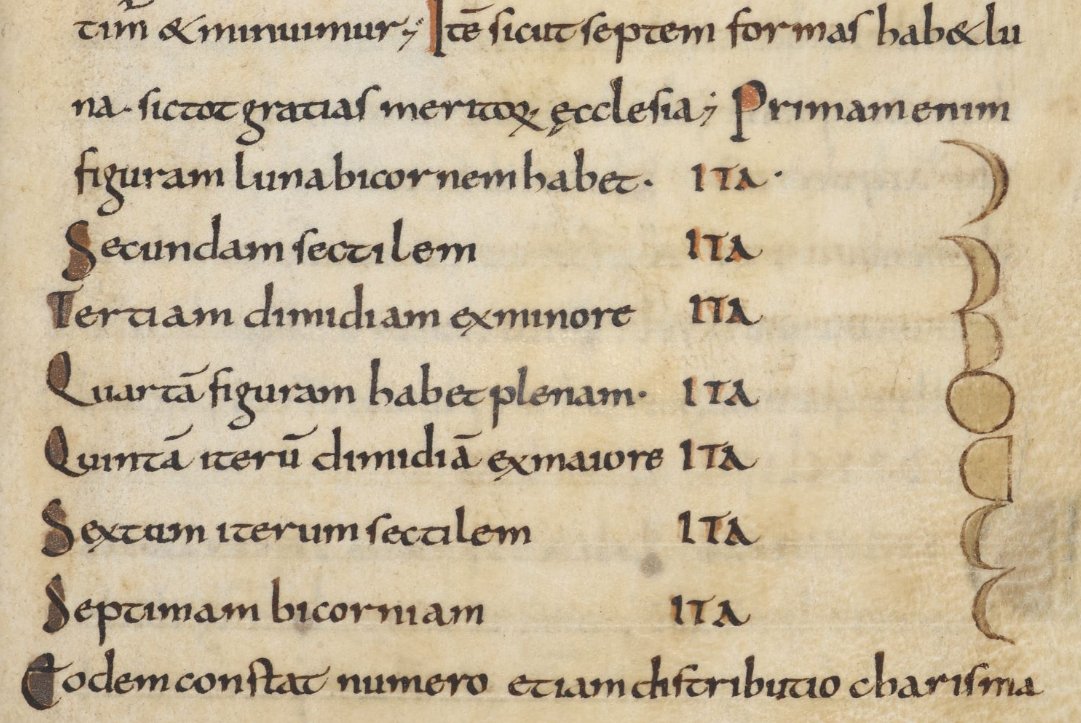 tim̄ &minuimur; Itē sicut septem formas hab& lu
na. sic tot gratias meritoꝝ ęcclesia; Primam enim
figuram luna bicornem habet. ITA.
Secundam sectilem ITA
Tertiam dimidiam ex minore ITA
Quartā figuram habet plenam. ITA
Quintā iterū dimidiā ex maiore ITA
Sextam iterum sectilem ITA
Septimam bicorniam ITA
Eodem constat numero etiam distributio charisma